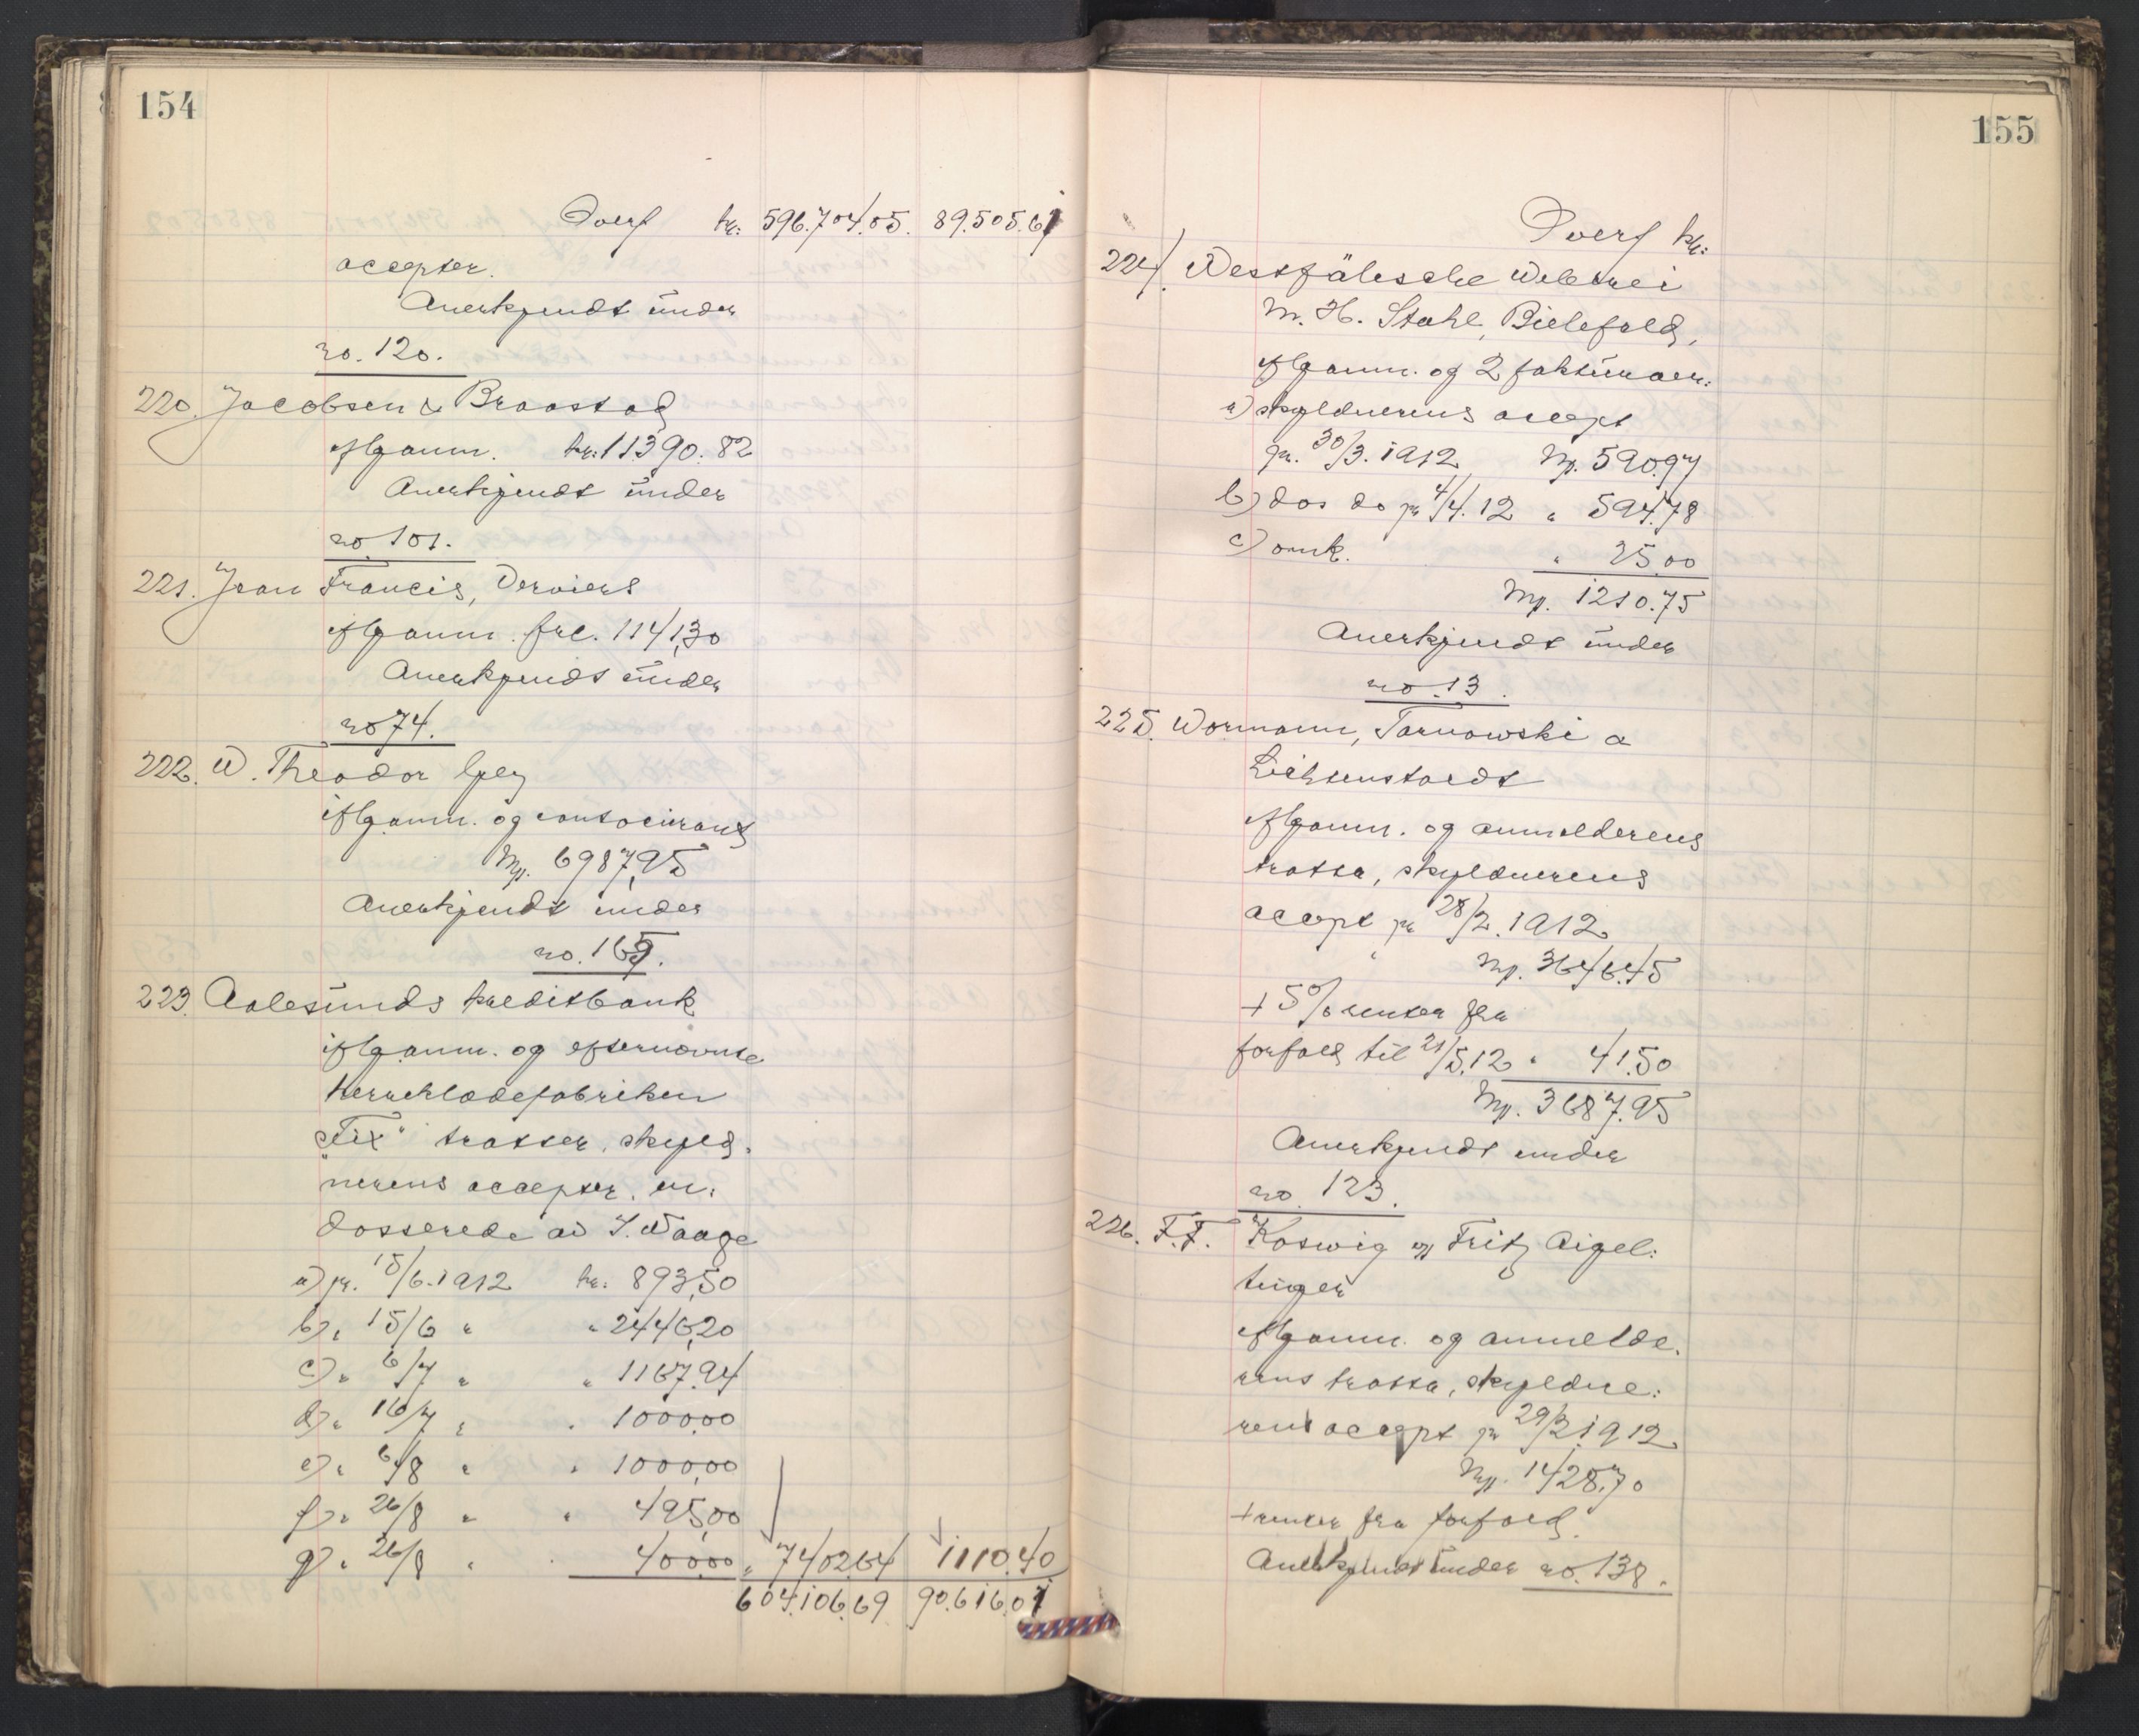 154
Overf kr: 596.704.05. 89.505.61
accepter.
Anerkjendt under
no. 120.
220. Jacobsen & Braastad
ifl. anm. kr: 11390.82
Anerkjendt under
no 101.
221. Jean Francis, Verviers
ifl. anm. frc. 114,30
Anerkjendt under
no 74.
222. W. Theodor
ifl. anm. og
Mp. 6987,95
Anerkjendt under
no. 165.
223. Aalesunds kreditbank
ifl. anm. og efternævnte
herreklædefabriken
"Fix" tratter, skyld-
nerens accepter, en-
dosserede av I. Waage
a) pr. 15/6.1912 kr: 893,50
b) " 15/6 " " 2446,20
c) " 6/7 " " 1167.94
d) " 16/7 " " 1000,00
e) " 6/8 " " 1000,00
f) " 26/8 " " 495,00
g) " 26/8 " " 400,00 " 7402.64 1110.40
604.106.69 90.616.01
155
Overf kr:
224. Westfälische Weberei
M. H. Stahl, Bielefeld,
ifl. anm. og 2 fakturaer:
a) skyldnerens accept
pr. 30/3.1912 Mp. 590.97
b) dos do pr 4/4.12 " 594.78
c) omk. " 25.00
Mp. 1210.75
Anerkjendt under
no. 13.
225. Wormann, Tarnowski &
Lichtenstaedt
ifl. anm. og anmelderens
tratta, skyldnerens
accept pr 28/2.1912
Mp. 3646.45
+ 5% renter fra
forfald til 21/5.12 " 41.50
Mp. 3687.95
Anerkjendt under
no 123.
226. F.F. Koswig og Fritz Aigel:
tinger
ifl. anm. og anmelde-
rens tratta, skyldne:
rens accept pr 29/2.1912
Mp. 1428.70
+ renter fra forfald.
Anerkjendt under no. 138.